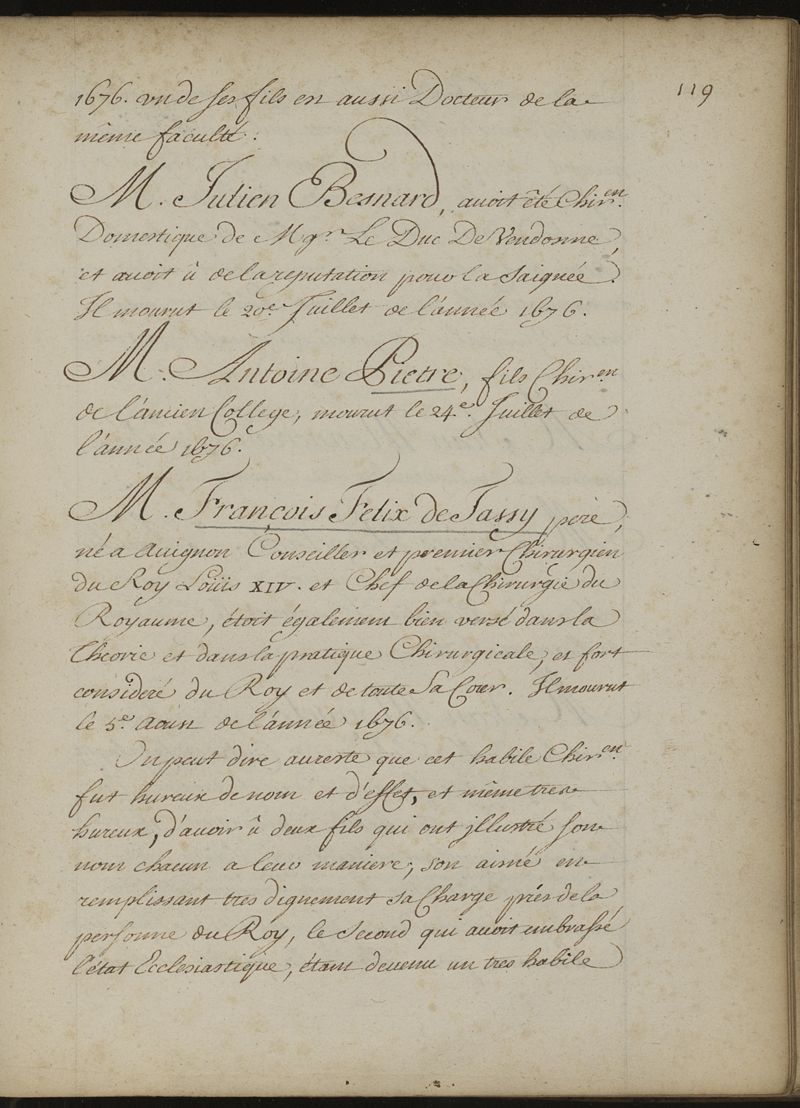 119
1676. un de ses fils en aussi Docteur de la
même faculté.
M. Julien Besnard, avoit été Chir.en
Domestique de Mgr. Le Duc De Vendonne,
et avoit û de la reputation pour la Saignée.
Il mourut le 20e. Juillet de l'année 1676.
M. Antoine Pietre, fils Chir.en
de l'ancien College, mourut le 24.e Juillet de
l'année 1676.
M. François Felix de Tassy pere,
né a Avignon Conseiller et premier Chirurgien
du Roy Loüis XIV. et Chef de la Chirurgie du
Royaume, étoit également bien versé dans la
Theorie et dans la pratique Chirurgicale, et fort
consideré du Roy et de toute Sa Cour. Il mourut
le 5e. Aoust de l'année 1676.
On peut dire au reste que cet habile Chir.en
fut hureux de nom et d'effet, et même tres
hureux, d'avoir û deux fils qui ont jllustré son
nom chacun a leur maniere; son aimé en
remplissant tres dignement sa Charge prés de la
personne du Roy, le Second qui avoit embrassé
l'état Ecclesiastique, étant devenu un tres habile